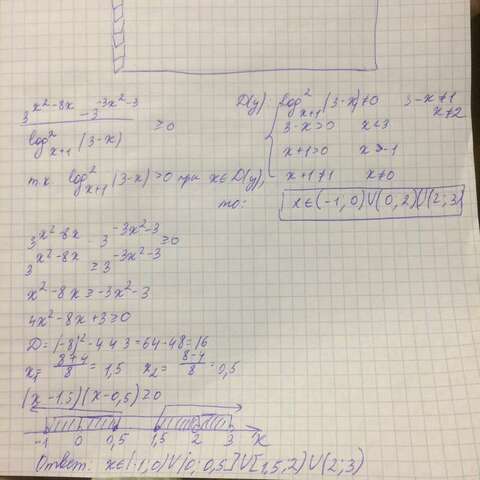 3^(x²-8x) - 3^(-3x²-3)
log²_(x+1) (3-x)
≥0
D(y): log²_(x+1) (3-x)≠0 3-x≠1
x≠2
3-x>0 x<3
x+1>0 x>-1
x+1≠1 x≠0
т.к. log²_(x+1) (3-x)>0 при x∈D(y),
то: x∈(-1,0)∪(0,2)∪(2;3)
3^(x²-8x) - 3^(-3x²-3) ≥0
3^(x²-8x) ≥3^(-3x²-3)
x²-8x≥-3x²-3
4x²-8x+3≥0
D=(-8)²-4·4·3=64-48=16
x₁= (8+4)/8 = 1,5 x₂= (8-4)/8 = 0,5
(x-1,5)(x-0,5)≥0
-1 0 0,5 1,5 2 3 x
Ответ: x∈(-1;0)∪(0;0,5]∪[1,5;2)∪(2;3)